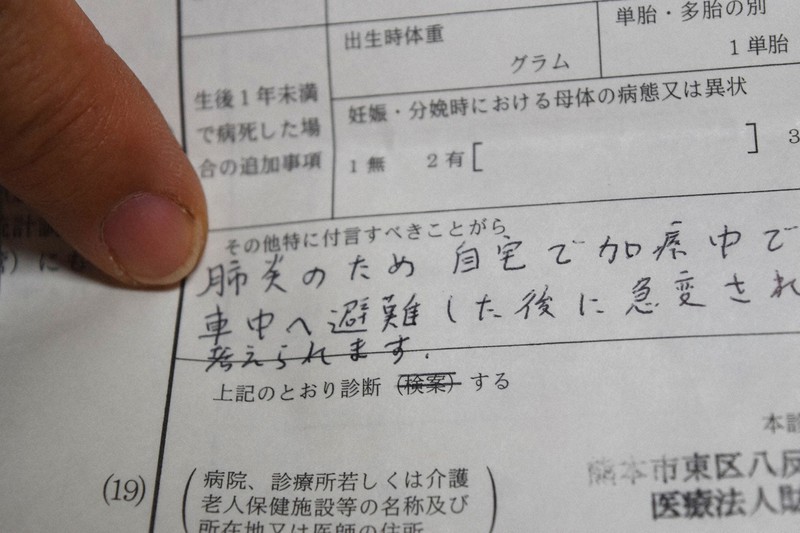 出生時体重
グラム
単胎・多胎の別
1 単胎
生後1年未満
で病死した場
合の追加事項
妊娠・分娩時における母体の病態又は異状
1 無 2 有 [ ] 3
その他特に付言すべきことがら
肺炎のため 自宅で加療中で
車中へ避難した後に急変され
考えられます.
上記のとおり診断 (検案) する
本診
(19)
病院、診療所若しくは介護
老人保健施設等の名称及び
所在地又は医師の住所
熊本市東区八反
医療法人財